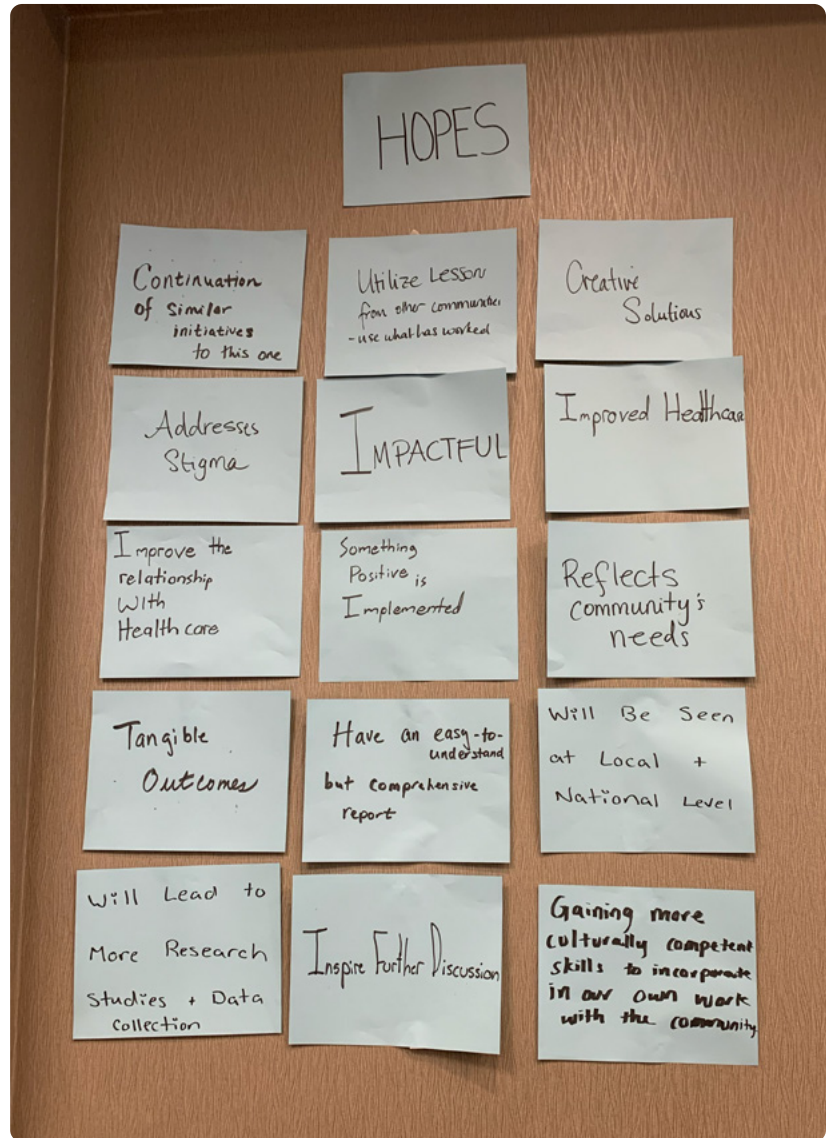 HOPES
Continuation
of Similar
initiatives
to this one
Utilize Lesson
from other communities
- use what has worked
Creative
Solutions
Addresses
Stigma
IMPACTFUL
Improved Healthcare
Improve the
relationship
With
Health care
Something
Positive is
Implemented
Reflects
community's
needs
Tangible
Outcomes
Have an easy-to-
understand
but comprehensive
report
Will Be Seen
at Local +
National Level
Will Lead to
More Research
Studies + Data
Collection
Inspire Further Discussion
Gaining more
culturally competent
skills to incorporate
in our own work
with the community